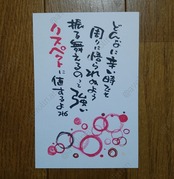 どんなに辛い時でも
周りに悟られぬよう
振る舞えるのって強い
リスペクトに値するよね